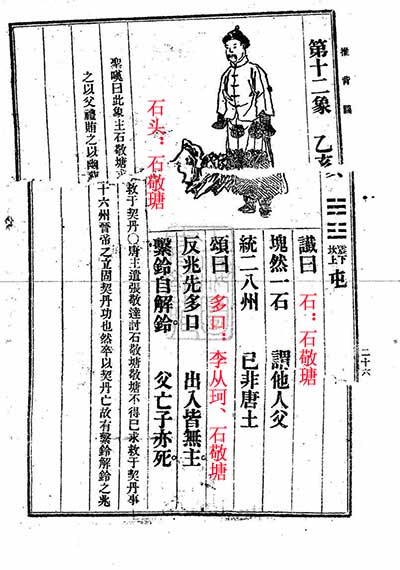 推背圖
二十六
第十二象 乙亥 ䷂ 震下坎上 屯
讖曰
石:石敬瑭
塊然一石 謂他人父
統二八州 已非唐土
頌曰
多口:李从珂、石敬瑭
反兆先多口 出入皆無主
繫鈴自解鈴。 父亡子亦死。
石头:石敬瑭
聖嘆曰此象主石敬瑭救于契丹〇唐主遣張敬達討石敬瑭敬瑭不得已求救于契丹事
之以父禮賂之以幽薊十六州晉帝之立固契丹功也然卒以契丹亡故有繫鈴解鈴之兆